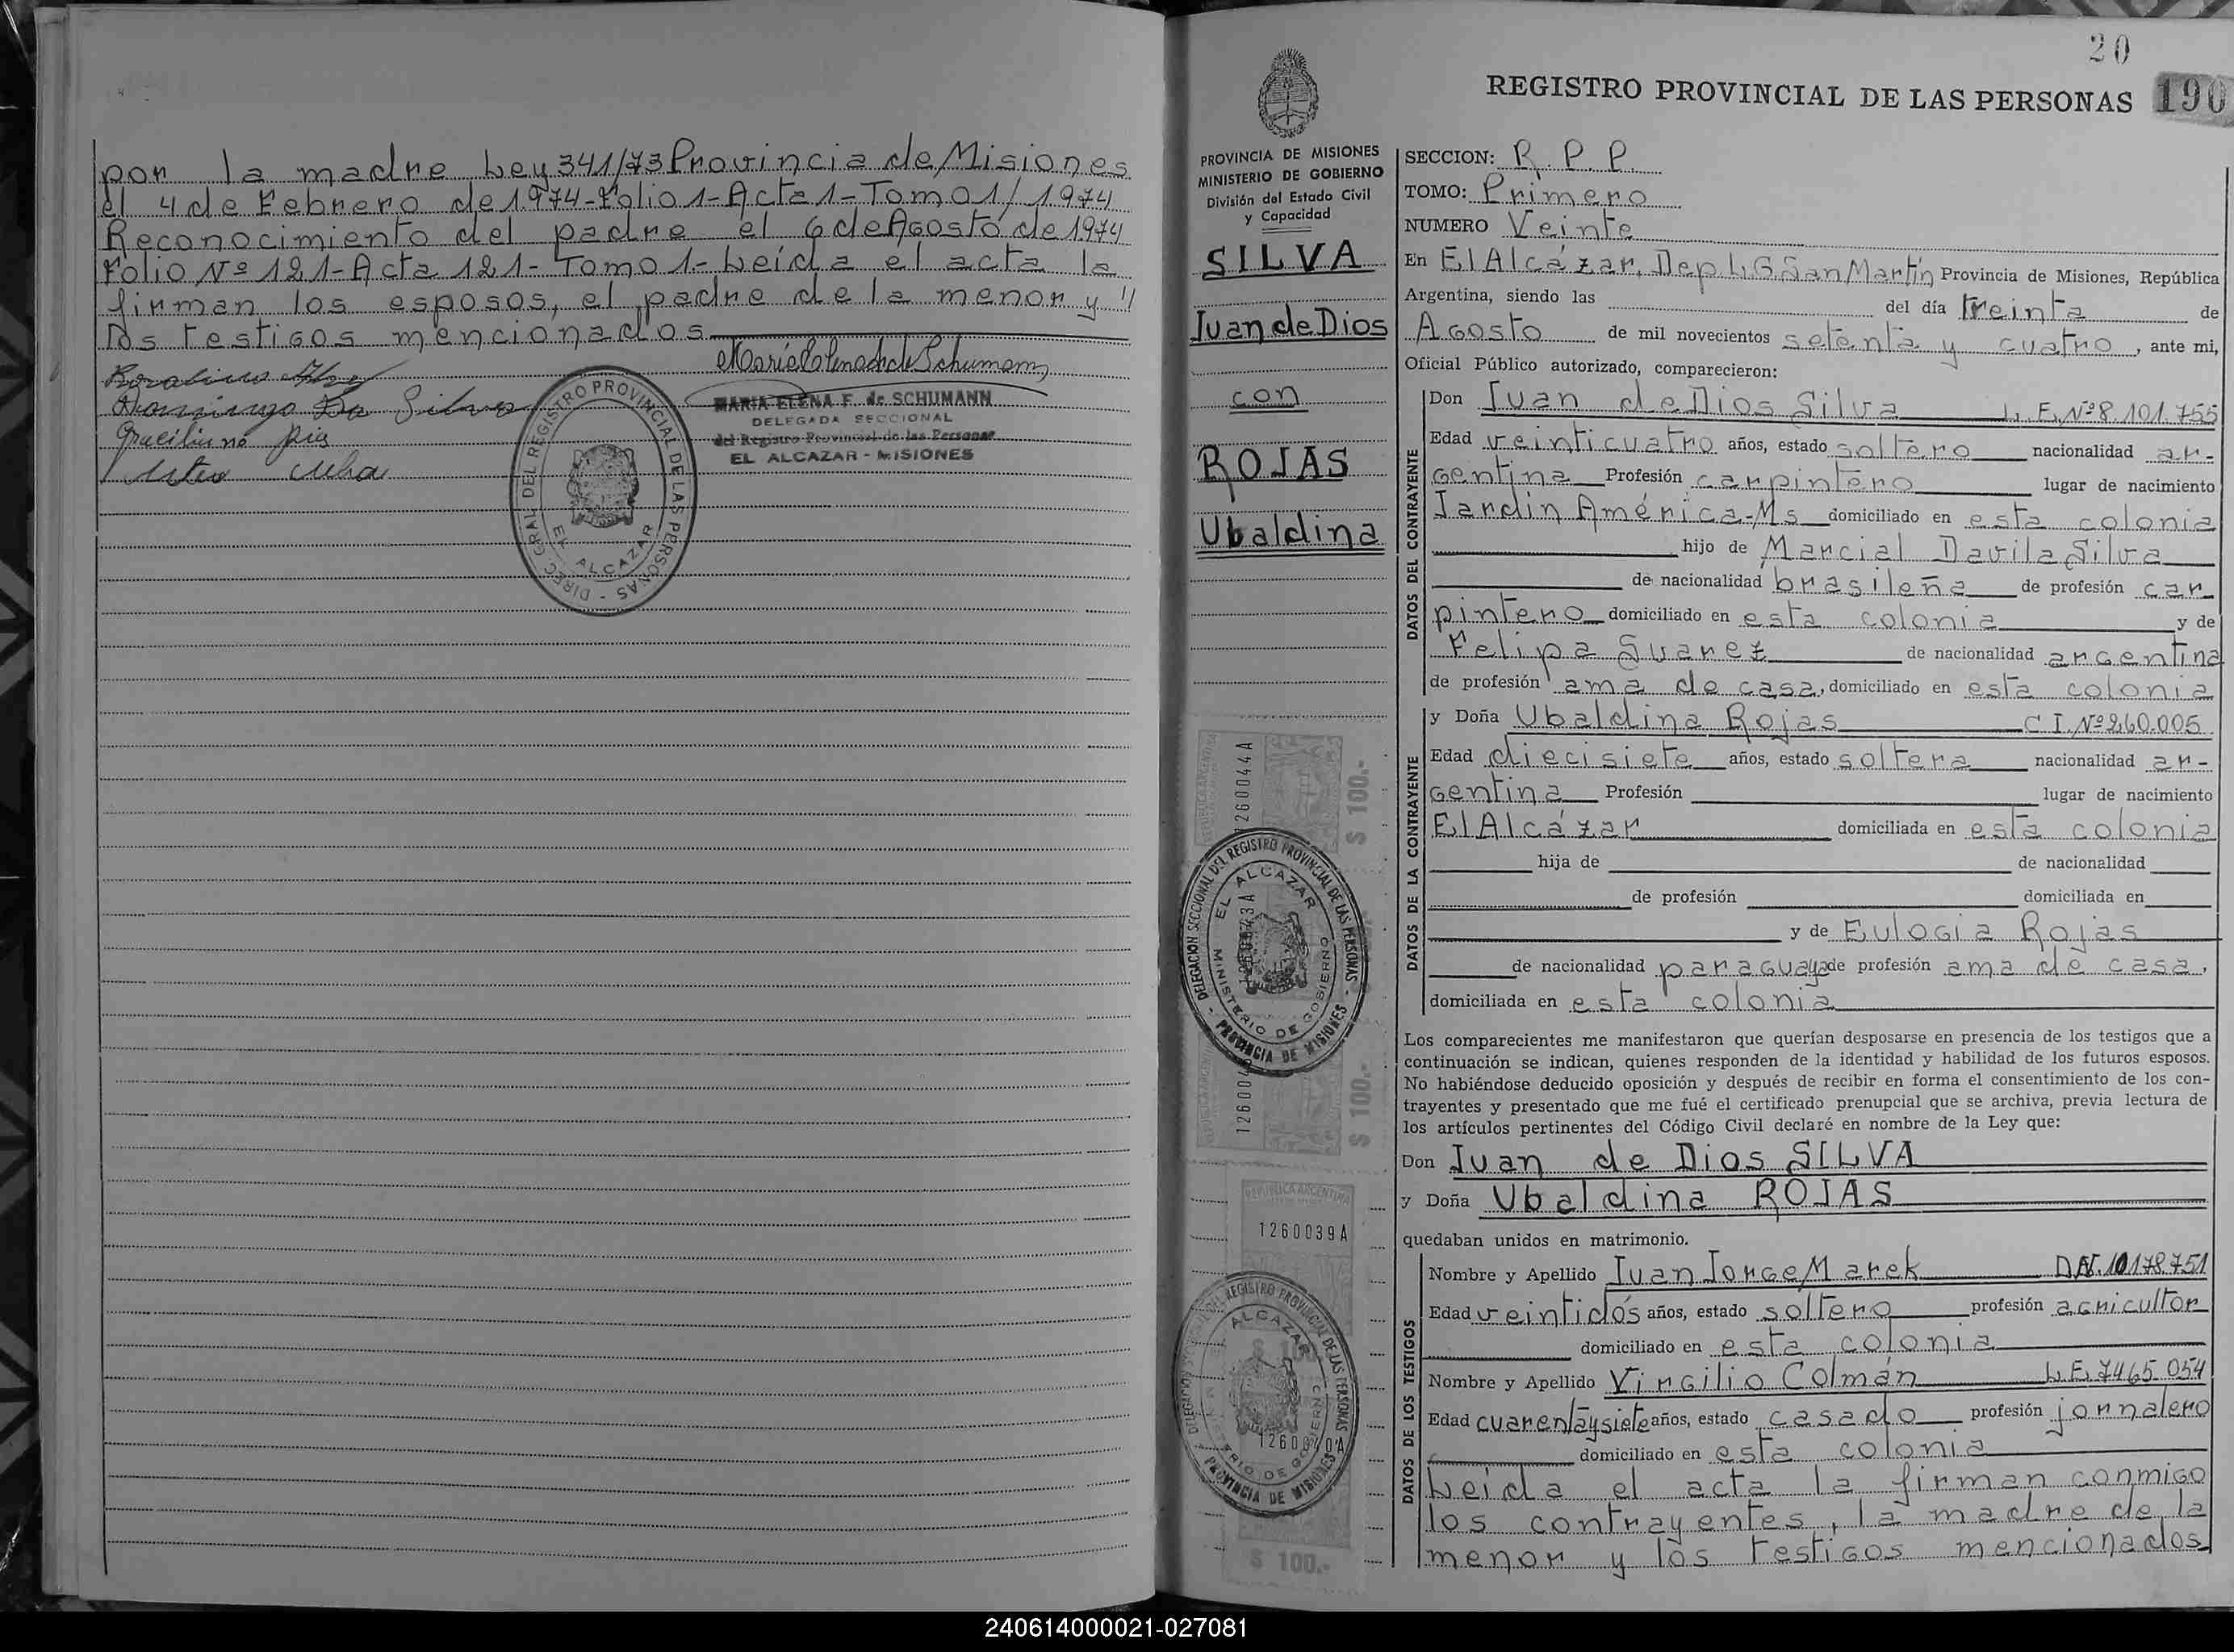 por la madre Ley 341/73 Provincia de Misiones
el 4 de Febrero de 1.974-Folio 1-Acta 1-Tomo 1/1974
Reconocimiento del padre el 6 de Agosto de 1974
Folio Nº 121-Acta 121- Tomo 1-Leída el acta la
firman los esposos, el padre de la menor y
los testigos mencionados
Domingo Da Silva
MARIA ELENA F. de SCHUMANN
DELEGADA SECCIONAL
del Registro Provincial de las Personas
EL ALCAZAR - MISIONES
DIREC. GRAL DEL REGISTRO PROVINCIAL DE LAS PERSONAS -
EL ALCAZAR
20
REGISTRO PROVINCIAL DE LAS PERSONAS 190
PROVINCIA DE MISIONES
MINISTERIO DE GOBIERNO
División del Estado Civil
y Capacidad
SILVA
Juan de Dios
con
ROJAS
Ubaldina
1260044A
$ 100.-
DELEGACION SECCIONAL DEL REGISTRO PROVINCIAL DE LAS PERSONAS - PROVINCIA DE MISIONES -
EL ALCAZAR
MINISTERIO DE GOBIERNO
$ 100.-
REPUBLICA ARGENTINA
1260039A
1260040A
$ 100.-
SECCION: R. P. P.
TOMO: Primero
NUMERO Veinte
En El Alcázar, Dep L.G.San Martín Provincia de Misiones, República
Argentina, siendo las del día treinta de
Agosto de mil novecientos setenta y cuatro, ante mi,
Oficial Público autorizado, comparecieron:
DATOS DEL CONTRAYENTE
Don Juan de Dios Silva L. E. Nº 8.101.755
Edad veinticuatro años, estado soltero nacionalidad ar-
gentina Profesión carpintero lugar de nacimiento
Jardin América-Ms domiciliado en esta colonia
hijo de Marcial Davila Silva
de nacionalidad brasileña de profesión car-
pintero domiciliado en esta colonia y de
Felipa Suarez de nacionalidad argentina
de profesión ama de casa, domiciliado en esta colonia
DATOS DE LA CONTRAYENTE
y Doña Ubaldina Rojas C I. Nº 260.005
Edad diecisiete años, estado soltera nacionalidad ar-
gentina Profesión lugar de nacimiento
El Alcázar domiciliada en esta colonia
hija de de nacionalidad
de profesión domiciliada en
y de Eulogia Rojas
de nacionalidad paraguaya de profesión ama de casa,
domiciliada en esta colonia
Los comparecientes me manifestaron que querían desposarse en presencia de los testigos que a
continuación se indican, quienes responden de la identidad y habilidad de los futuros esposos.
No habiéndose deducido oposición y después de recibir en forma el consentimiento de los con-
trayentes y presentado que me fué el certificado prenupcial que se archiva, previa lectura de
los artículos pertinentes del Código Civil declaré en nombre de la Ley que:
Don Juan de Dios SILVA
y Doña Ubaldina ROJAS
quedaban unidos en matrimonio.
DATOS DE LOS TESTIGOS
Nombre y Apellido Juan Jorge Marek DNI. 10178751
Edad veintidós años, estado soltero profesión agricultor
domiciliado en esta colonia
Nombre y Apellido Virgilio Colmán L. E. 7465.054
Edad cuarenta y siete años, estado casado profesión jornalero
domiciliado en esta colonia
Leída el acta la firman conmigo
los contrayentes, la madre de la
menor y los testigos mencionados
240614000021-027081